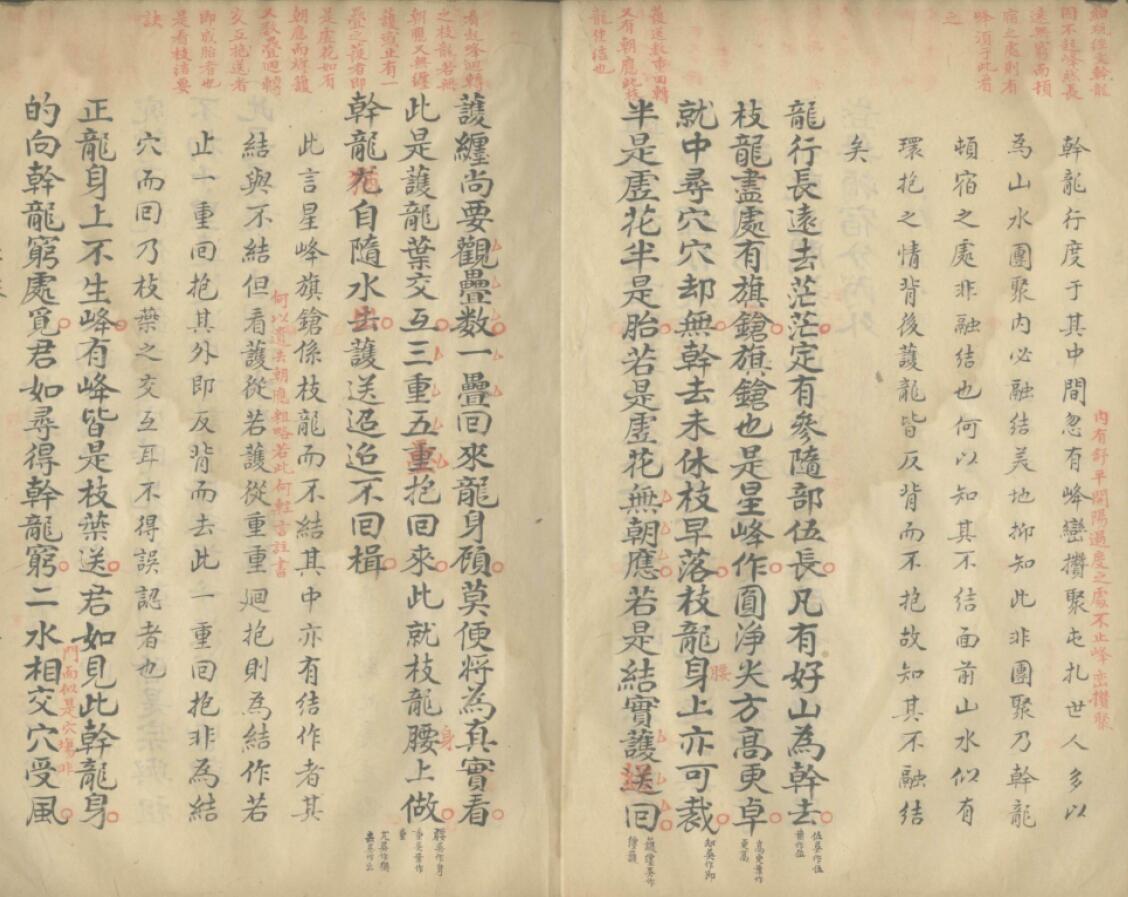 幹龍行度于其中間忽有峰巒攢聚屯扎世人多以
為山水團聚内必融結美地抑知此非團聚乃幹龍
頓宿之處非融結也何以知其不結面前山水似有
環抱之情背後護龍皆反背而不抱故知其不融結
矣
龍行長遠去茫茫定有參隨部伍長凡有好山為幹去
枝龍盡處有旗鎗旗鎗也是星峰作圓淨尖方高更卓
就中尋穴穴却無幹去未休枝早落枝龍身上亦可裁
半是虛花半是胎若是虛花無朝應若是結實護送回
護纏尚要觀疊数一疊回來龍身顧莫便將為真實看
此是護龍葉交互三重五重抱回來此就枝龍腰上做
幹龍尤自隨水去護送迢迢不回楫
此言星峰旗鎗係枝龍而不結其中亦有結作者其
結與不結但看護從若護從重重廻抱則為結作若
止一重回抱其外即反背而去此一重回抱非為結
穴而回乃枝葉之交互耳不得誤認者也
正龍身上不生峰有峰皆是枝葉送君如見此幹龍身
的向幹龍窮處覓君如尋得幹龍窮二水相交穴受風
内有舒平開陽過度之處不止峰巒攢聚
腰
身
何以遺去朝應粗略若此何輕言註書
門而似是穴塲非
看起峰迴轉
之枝龍若無
朝應又無纏
護或止有一
疊之護者即
是虛花如有
朝應而纏護
又数疊迴轉
交互抱送者
即成胎者也
是看枝結要
訣
護送数重回轉
又有朝應此枝
龍佳結也